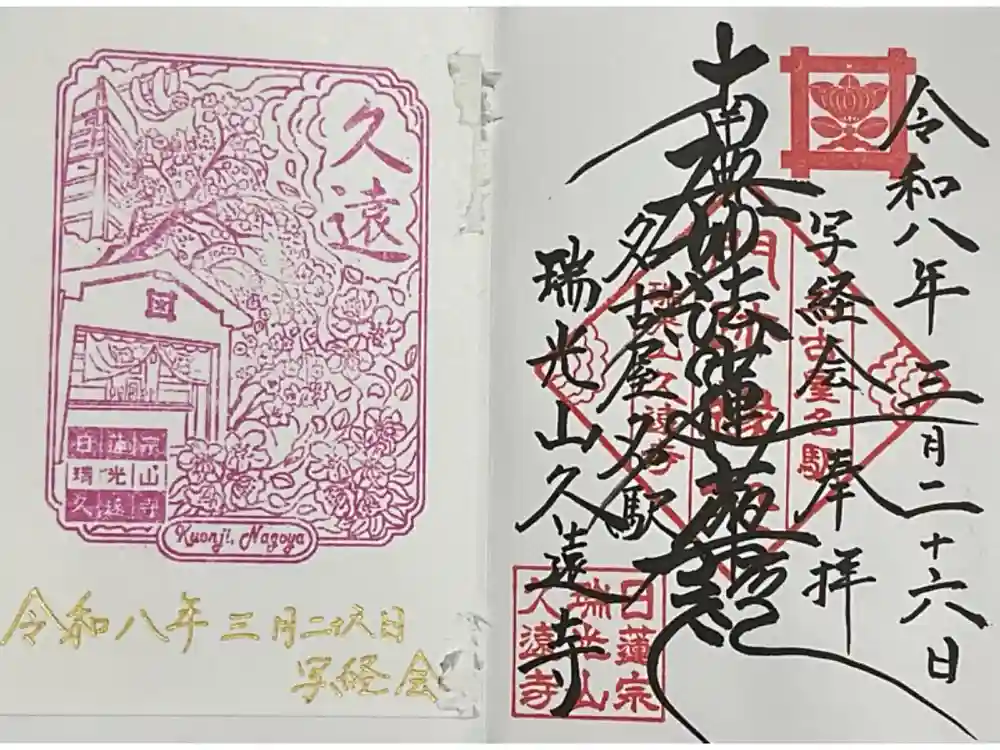 久遠
日蓮宗
瑞光山
久遠寺
Kuonji, Nagoya
令和八年三月二十六日
写経会
令和八年三月二十六日
写経会 奉拝
南無妙法蓮華経
名古屋名駅
瑞光山久遠寺
日蓮宗
瑞光山
久遠寺